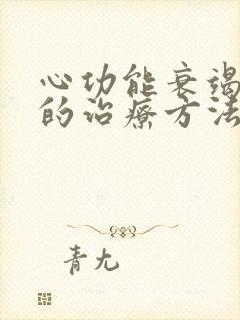 心功能衰竭
的治疗方法
青尢